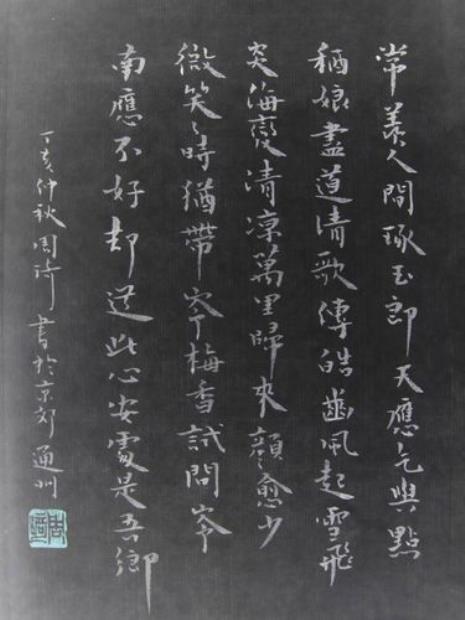 常羨人間琢玉郎天應乞與點
酥娘盡道清歌傳皓齒風起雪飛
炎海變清凉萬里歸來顏愈少
微笑々時猶帶岺梅香試問岺
南應不好却道此心安處是吾鄉
丁亥仲秋周琦書於京郊通州